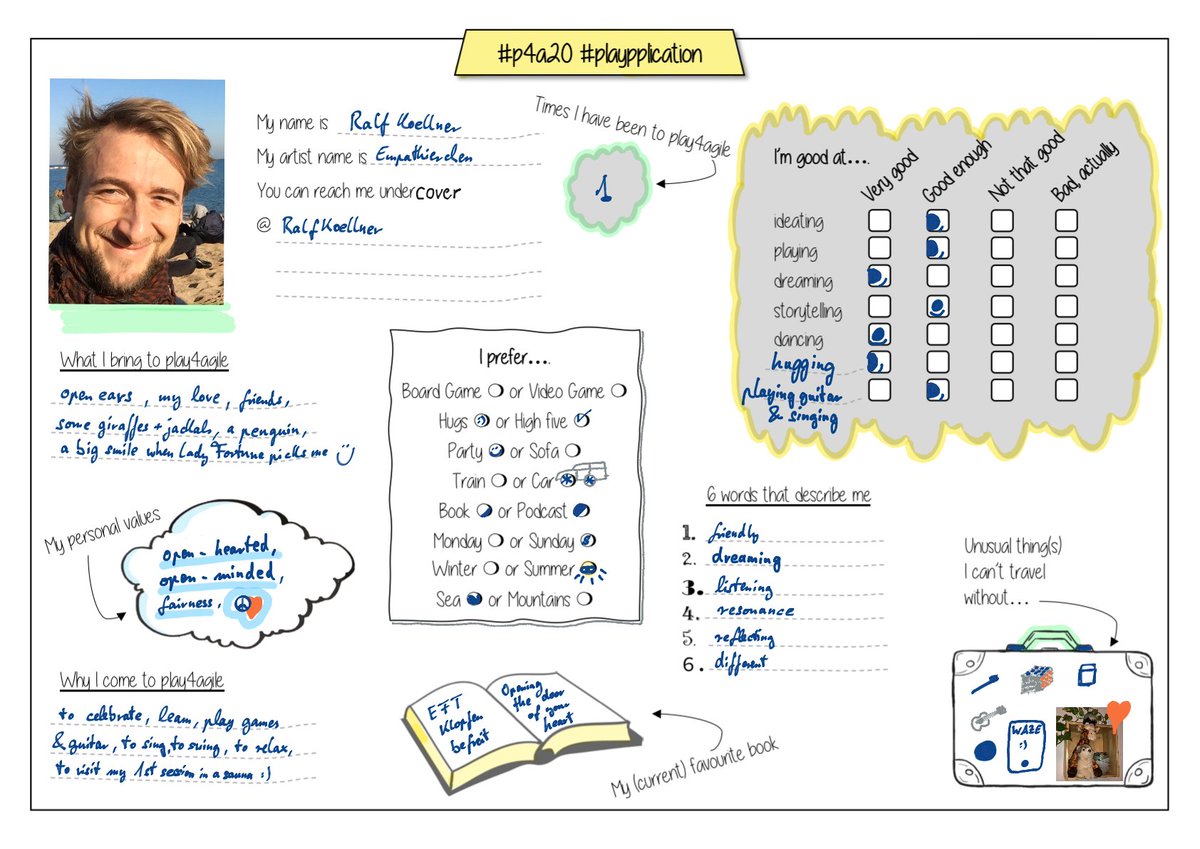 #p4a20 #playpplication
My name is Ralf Koellner
My artist name is Empathierchen
You can reach me undercover
@ RalfKoellner
Times I have been to play4agile
1
I'm good at....
Very good
Good enough
Not that good
Bad, actually
ideating
playing
dreaming
storytelling
dancing
hugging
playing guitar
& singing
What I bring to play4agile
open ears, my love, friends,
some giraffes + jackals, a penguin,
a big smile when Lady Fortune picks me :)
I prefer....
Board Game or Video Game
Hugs or High five
Party or Sofa
Train or Car
Book or Podcast
Monday or Sunday
Winter or Summer
Sea or Mountains
My personal values
open-hearted,
open-minded,
fairness,
6 words that describe me
1. friendly
2. dreaming
3. listening
4. resonance
5. reflecting
6. different
Unusual thing(s)
I can't travel
without...
WAZE
:)
Why I come to play4agile
to celebrate, learn, play games
& guitar, to sing, to swing, to relax,
to visit my 1st session in a sauna :)
EFT
Klopfen
befreit
Opening
the door
of your
heart
My (current) favourite book